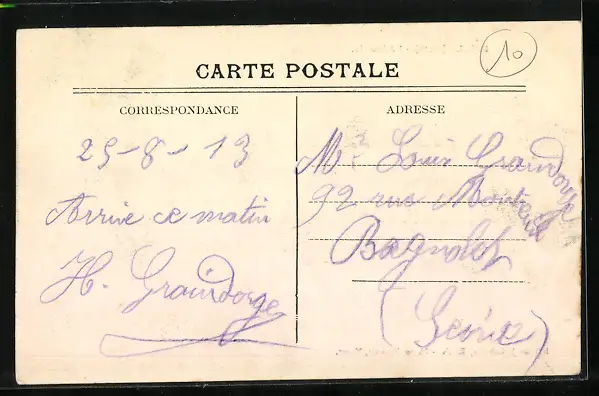 10
CARTE POSTALE
CORRESPONDANCE
ADRESSE
25-8-13
Arrive ce matin
H. Graindorge
Mr Louis Graindorge
92 rue Montreuil
Bagnolet
(Seine)